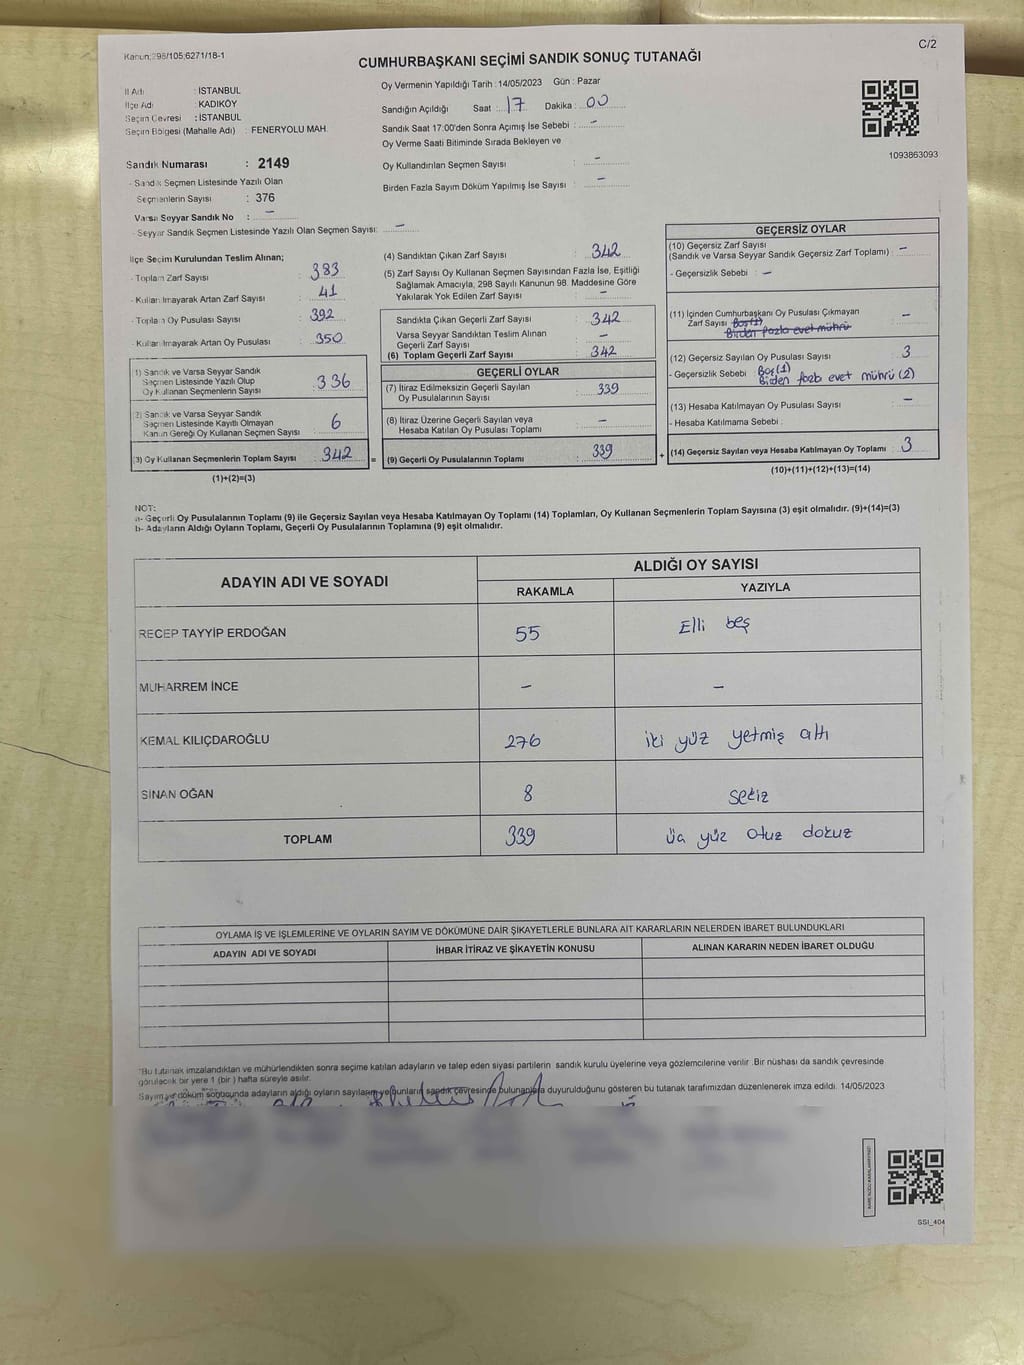 Kanun:298/105;6271/18-1
C/2
CUMHURBAŞKANI SEÇİMİ SANDIK SONUÇ TUTANAĞI
İl Adı : İSTANBUL
İlçe Adı : KADIKÖY
Seçim Çevresi : İSTANBUL
Seçim Bölgesi (Mahalle Adı) : FENERYOLU MAH.
Sandık Numarası : 2149
- Sandık Seçmen Listesinde Yazılı Olan
Seçmenlerin Sayısı : 376
Varsa Seyyar Sandık No : –
- Seyyar Sandık Seçmen Listesinde Yazılı Olan Seçmen Sayısı: –
Oy Vermenin Yapıldığı Tarih : 14/05/2023 Gün : Pazar
Sandığın Açıldığı Saat : 17 Dakika : 00
Sandık Saat 17:00'den Sonra Açımış İse Sebebi : –
Oy Verme Saati Bitiminde Sırada Bekleyen ve
Oy Kullandırılan Seçmen Sayısı : –
Birden Fazla Sayım Döküm Yapılmış İse Sayısı : –
1093863093
İlçe Seçim Kurulundan Teslim Alınan;
- Toplam Zarf Sayısı : 383
- Kullanılmayarak Artan Zarf Sayısı : 41
- Toplam Oy Pusulası Sayısı : 392
- Kullanılmayarak Artan Oy Pusulası : 350
1) Sandık ve Varsa Seyyar Sandık
Seçmen Listesinde Yazılı Olup
Oy Kullanan Seçmenlerin Sayısı : 336
2) Sandık ve Varsa Seyyar Sandık
Seçmen Listesinde Kayıtlı Olmayan
Kanun Gereği Oy Kullanan Seçmen Sayısı : 6
(3) Oy Kullanan Seçmenlerin Toplam Sayısı : 342
(1)+(2)=(3)
=
(4) Sandıktan Çıkan Zarf Sayısı : 342
(5) Zarf Sayısı Oy Kullanan Seçmen Sayısından Fazla İse, Eşitliği
Sağlamak Amacıyla, 298 Sayılı Kanunun 98. Maddesine Göre
Yakılarak Yok Edilen Zarf Sayısı : –
Sandıkta Çıkan Geçerli Zarf Sayısı : 342
Varsa Seyyar Sandıktan Teslim Alınan
Geçerli Zarf Sayısı :
(6) Toplam Geçerli Zarf Sayısı : 342
GEÇERLİ OYLAR
(7) İtiraz Edilmeksizin Geçerli Sayılan
Oy Pusulalarının Sayısı : 339
(8) İtiraz Üzerine Geçerli Sayılan veya
Hesaba Katılan Oy Pusulası Toplamı : –
(9) Geçerli Oy Pusulalarının Toplamı : 339
+
GEÇERSİZ OYLAR
(10) Geçersiz Zarf Sayısı
(Sandık ve Varsa Seyyar Sandık Geçersiz Zarf Toplamı) : –
- Geçersizlik Sebebi : –
(11) İçinden Cumhurbaşkanı Oy Pusulası Çıkmayan
Zarf Sayısı : Boş(1) –
Birden fazla evet mührü
(12) Geçersiz Sayılan Oy Pusulası Sayısı : 3
- Geçersizlik Sebebi : Boş(1)
Birden fazla evet mührü (2)
(13) Hesaba Katılmayan Oy Pusulası Sayısı : –
- Hesaba Katılmama Sebebi :
(14) Geçersiz Sayılan veya Hesaba Katılmayan Oy Toplamı : 3
(10)+(11)+(12)+(13)=(14)
NOT:
a- Geçerli Oy Pusulalarının Toplamı (9) ile Geçersiz Sayılan veya Hesaba Katılmayan Oy Toplamı (14) Toplamları, Oy Kullanan Seçmenlerin Toplam Sayısına (3) eşit olmalıdır. (9)+(14)=(3)
b- Adayların Aldığı Oyların Toplamı, Geçerli Oy Pusulalarının Toplamına (9) eşit olmalıdır.
ADAYIN ADI VE SOYADI
ALDIĞI OY SAYISI
RAKAMLA YAZIYLA
RECEP TAYYİP ERDOĞAN 55 Elli beş
MUHARREM İNCE – –
KEMAL KILIÇDAROĞLU 276 iki yüz yetmiş altı
SİNAN OĞAN 8 sekiz
TOPLAM 339 üç yüz otuz dokuz
OYLAMA İŞ VE İŞLEMLERİNE VE OYLARIN SAYIM VE DÖKÜMÜNE DAİR ŞİKAYETLERLE BUNLARA AİT KARARLARIN NELERDEN İBARET BULUNDUKLARI
ADAYIN ADI VE SOYADI İHBAR İTİRAZ VE ŞİKAYETİN KONUSU ALINAN KARARIN NEDEN İBARET OLDUĞU
*Bu tutanak imzalandıktan ve mühürlendikten sonra seçime katılan adayların ve talep eden siyasi partilerin sandık kurulu üyelerine veya gözlemcilerine verilir .Bir nüshası da sandık çevresinde
görülecek bir yere 1 (bir ) hafta süreyle asılır.
Sayım ve döküm sonucunda adayların aldığı oyların sayılarını ve bunların sandık çevresinde bulunanlara duyurulduğunu gösteren bu tutanak tarafımızdan düzenlenerek imza edildi. 14/05/2023
SSI_404